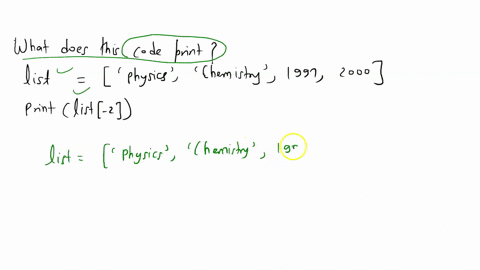 What does this code print?
list = ['physics', 'Chemistry', 1997, 2000]
print (list[-2])
list = ['physics', 'Chemistry', 19